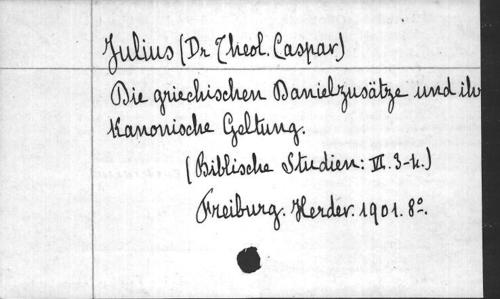 Julius (Dr Theol. Caspar)
Die griechischen Danielzusätze und ihr
Kanonische Geltung.
(Biblische Studien: VI. 3-4.)
Freiburg. Herder. 1901. 8º.